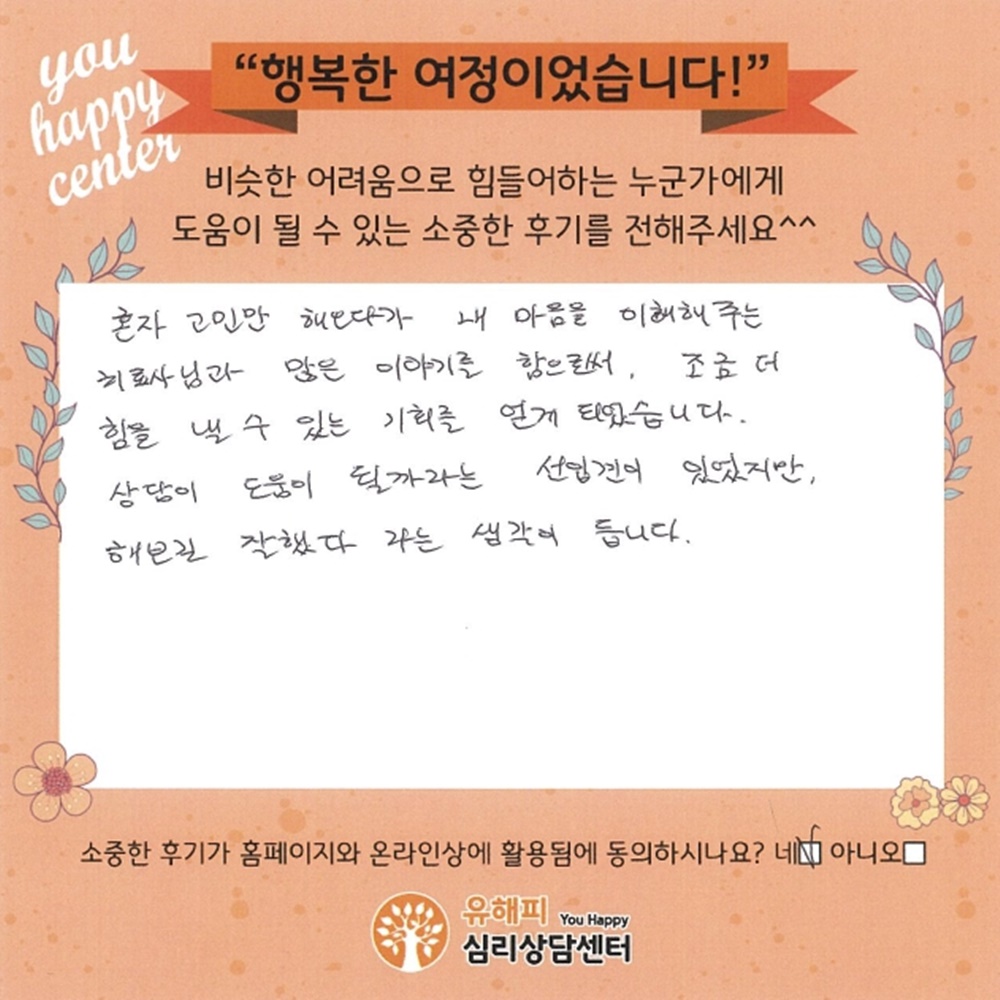 you
happy
center
“행복한 여정이었습니다!”
비슷한 어려움으로 힘들어하는 누군가에게
도움이 될 수 있는 소중한 후기를 전해주세요^^
혼자 고민만 해오다가 내 마음을 이해해 주는
치료사님과 많은 이야기를 함으로써, 조금 더
힘을 낼 수 있는 기회를 얻게 되었습니다.
상담이 도움이 될까라는 선입견이 있었지만,
해보길 잘했다 라는 생각이 듭니다.
소중한 후기가 홈페이지와 온라인상에 활용됨에 동의하시나요? 네 아니오
유해피 You Happy
심리상담센터